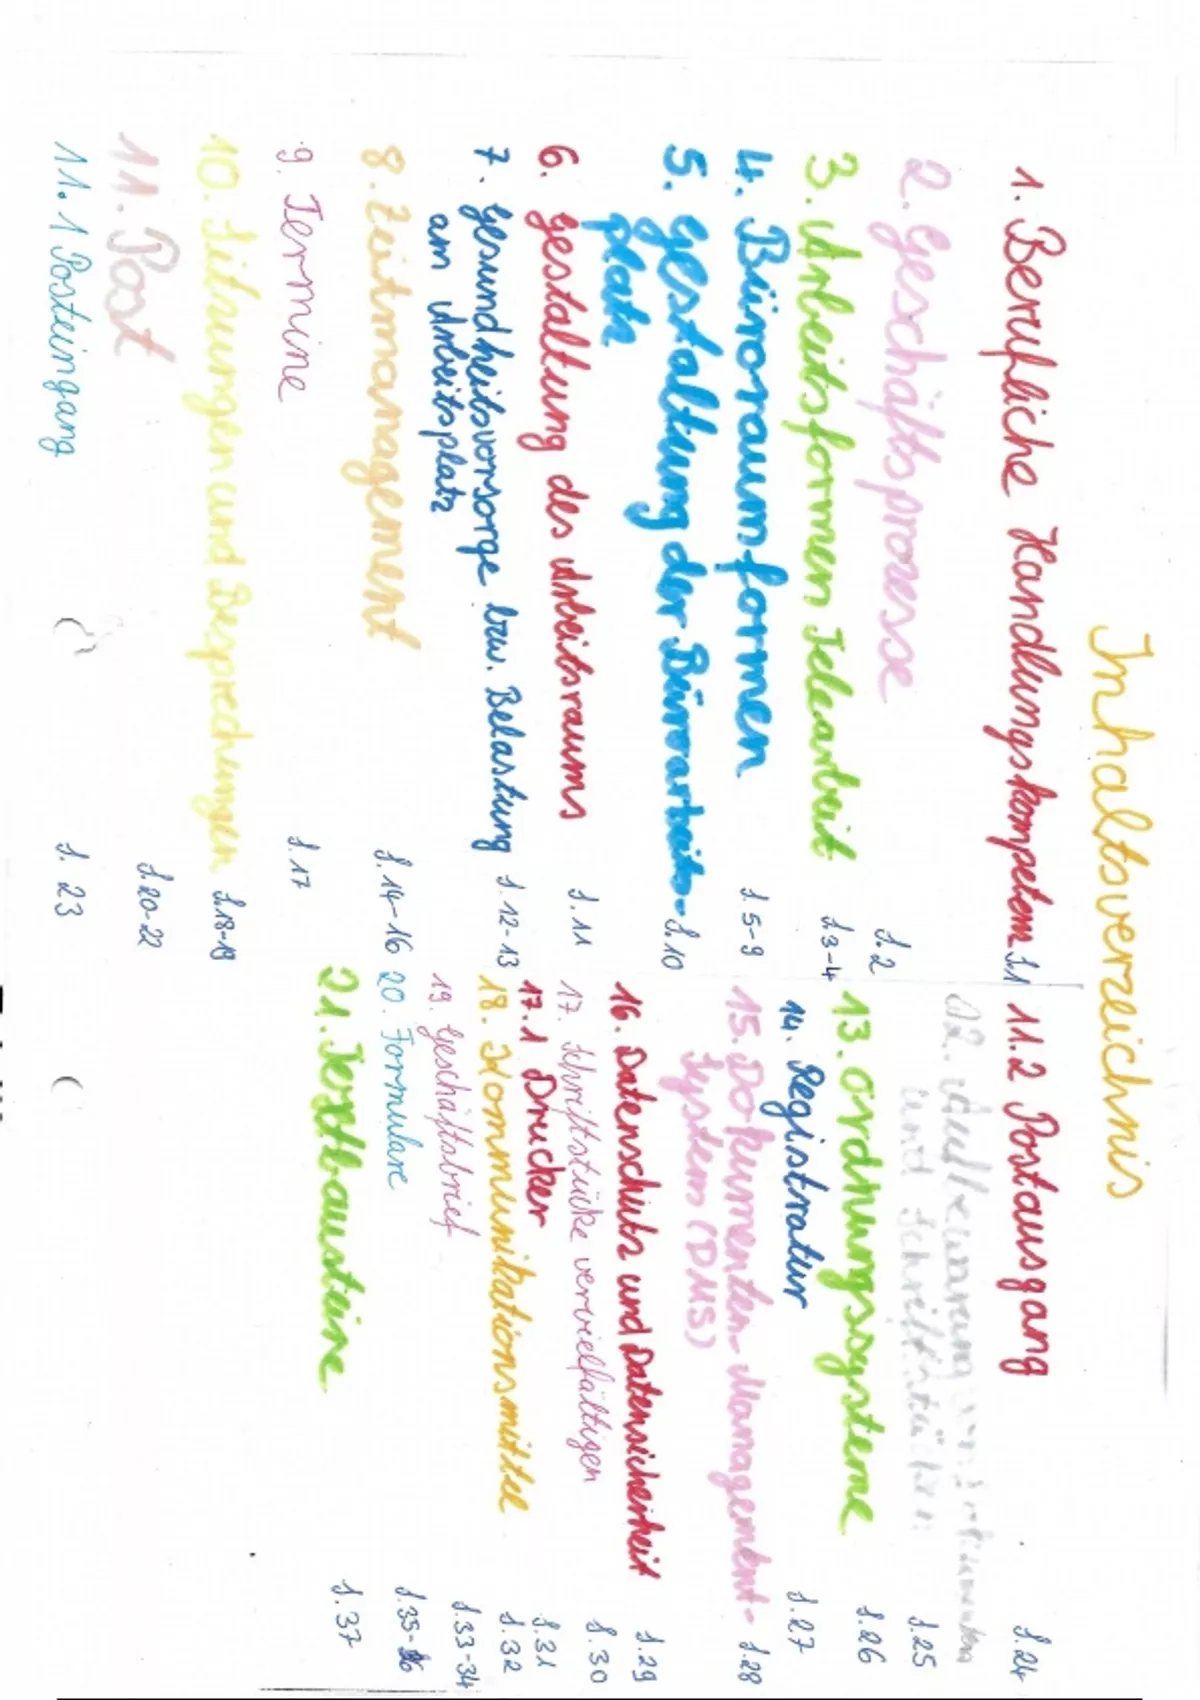 Inhaltsverzeichnis
1. Berufliche Handlungskompetenz S.1
2. Geschäftsprozesse S.2
3. Arbeitsformen Telearbeit S.3-4
4. Büroraumformen S.5-9
5. Gestaltung der Büroarbeits- S.10
platz
6. Gestaltung des Arbeitsraums S.11
7. Gesundheitsvorsorge bzw. Belastung S.12-13
am Arbeitsplatz
8. Zeitmanagement S.14-16
9. Termine S.17
10. Sitzungen und Besprechungen S.18-19
11. Post S.20-22
11.1 Posteingang S. 23
11.2 Postausgang S.24
12. Aufbewarung von
und Schriftstücken S.25
13. Ordnungssysteme S.26
14. Registratur S.27
15. Dokumenten-Management- S.28
System (DMS)
16. Datenschutz und Datensicherheit S.29
17. Schriftstücke vervielfältigen S.30
17.1 Drucker S.31
18. Kommunikationsmittel S.32
19. Geschäftsbrief S.33-34
20. Formulare S.35-36
21. Textbausteine S.37